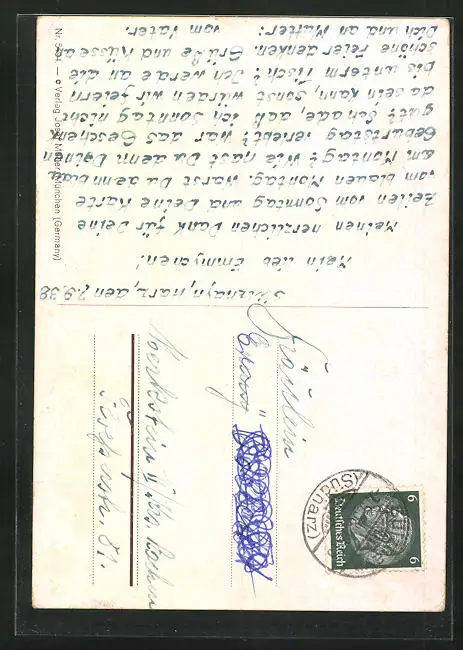 Sülzhayn, Harz, den 2.9.38
Mein lieb Emmychen!
Meinen herzlichen Dank für Deine
Zeilen vom Sonntag und Deine Karte
vom blauen Montag. Warst Du denn blau
am Montag? Wie hast Du denn Deinen
Geburtstag verlebt? War das Geschenk
gut? Schade, daß ich Sonntag nicht
da sein kann, sonst würden wir feiern
bis unterm Tisch! Ich werde an die
schöne Feier denken. Grüße und Küsse an
Dich und an Mutter.
vom Vater.
Verlag Josef München (Germany)
Fräulein
Emmy
Merkstein
81.
(Südharz)
6 6
Deutsches Reich